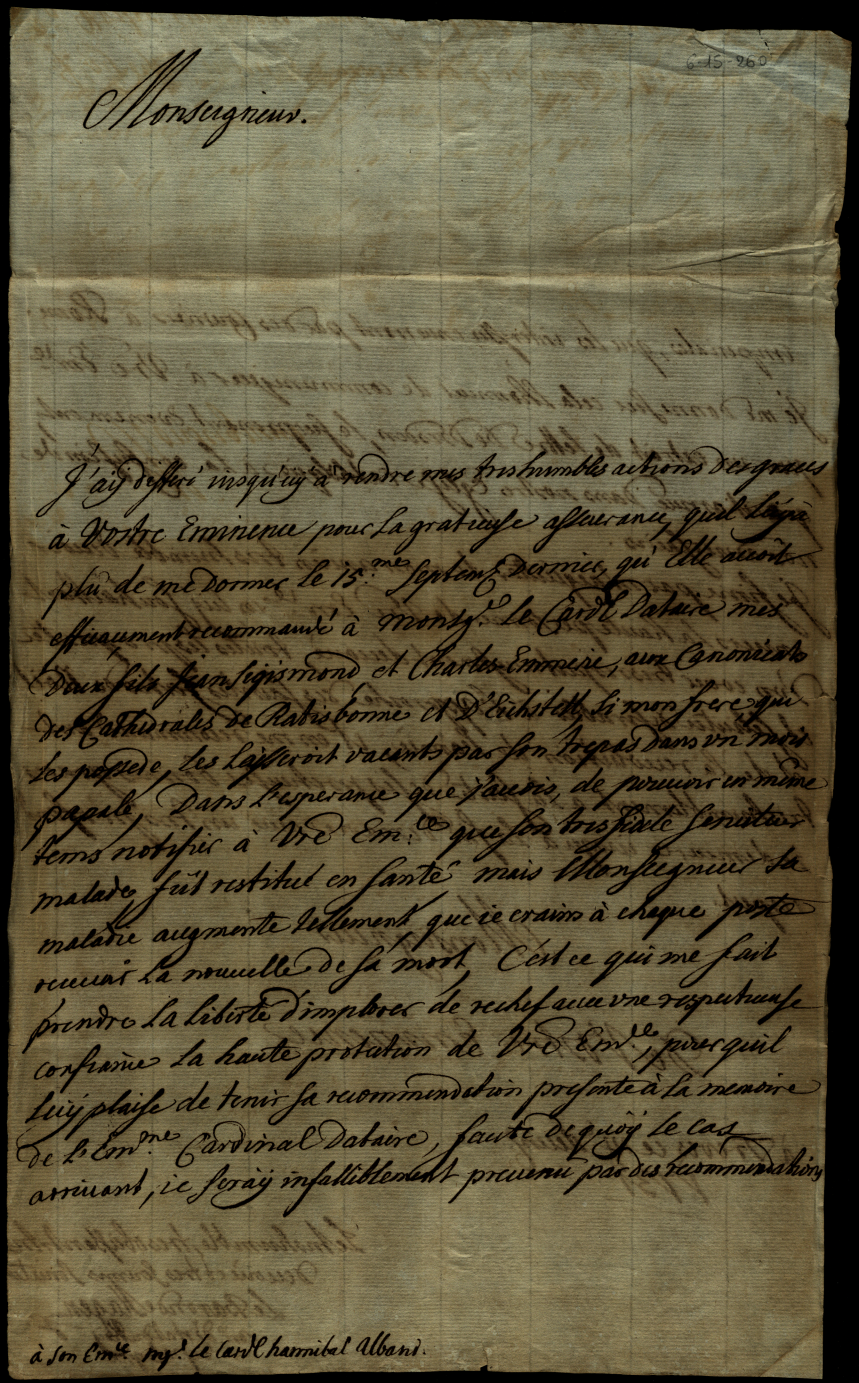 6-15-260
Monseigneur.
J'aÿ differé iusqu'icy à rendre mes tres humbles actions des graces
à Vostre Eminence pour la gratieuse asseurance, qu'il luÿ a
plû de me donner le 15.me Septemb. dernier, qu'Elle avoit
efficacement recommandé à Monsgr. le Cardl Dataire mes
deux fils Jean Sigismond et Charles Emmeric, aux Canonicats
des Cathedrales de Ratisbonne et D'Eichstett, si mon frere qui
les possede, les laisseroit vacants par son trepas dans un mois
papale, Dans l'esperance que j'auois, de pouuoir en même
tems notifier à Vre Em.ce que son tres fidele seruiteur
malade, fût restitué en santé mais Monseigneur sa
maladie augmente tellement, que ie crains à chaque poste
receuoir la nouuelle de sa mort, C'est ce qui me fait
prendre la liberté d'implorer de rechef auec une respectueuse
confiance la haute protection de Vre Em.ce, pour qu'il
luÿ plaise de tenir sa recommendation presente à la memoire
de l'Em.me Cardinal Dataire, faute de quoÿ le cas
arriuant, ie seraÿ infalliblement preuenu par des recommendations
à son Em.ce Mgr. le Cardl hannibal Albani.